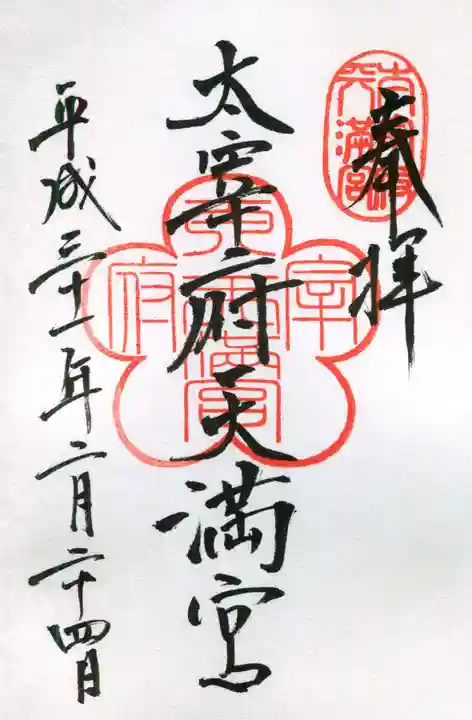 奉拝
天満宮
太宰府天満宮
宰
府
天満宮
平成三十一年二月二十四日